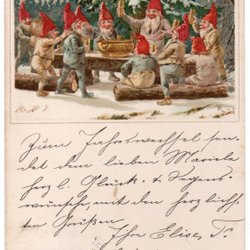 Zum Jahreswechsel sen-
det dem lieben Mariele
herzl. Glück- & Segens-
wünsche, mit den herzlich-
sten Grüßen
Ihre Elise T.